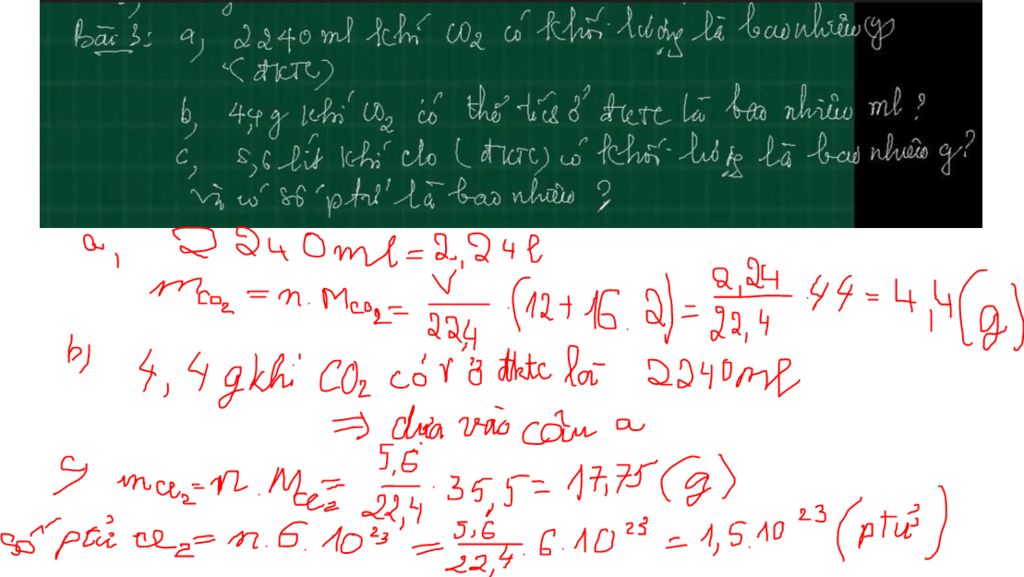 Bài 3: a, 2240 ml khí CO2 có khối lượng là bao nhiêu g
(đktc)
b, 4,4 g khí CO2 có thể tích ở đktc là bao nhiêu ml?
c, 5,6 lít khí clo (đktc) có khối lượng là bao nhiêu g?
và có số ptử là bao nhiêu?
a, 2240ml = 2,24l
mCO2 = n. MCO2 = V/22,4 . (12 + 16 . 2) = 2,24/22,4 . 44 = 4,4 (g)
b) 4,4 g khi CO2 có V ở đktc là 2240ml
⇒ dựa vào câu a
c) mCl2 = n. MCl2 = 5,6/22,4 . 35,5 = 17,75 (g)
số ptử Cl2 = n. 6. 10^23 = 5,6/22,4 . 6. 10^23 = 1,5. 10^23 (ptử)